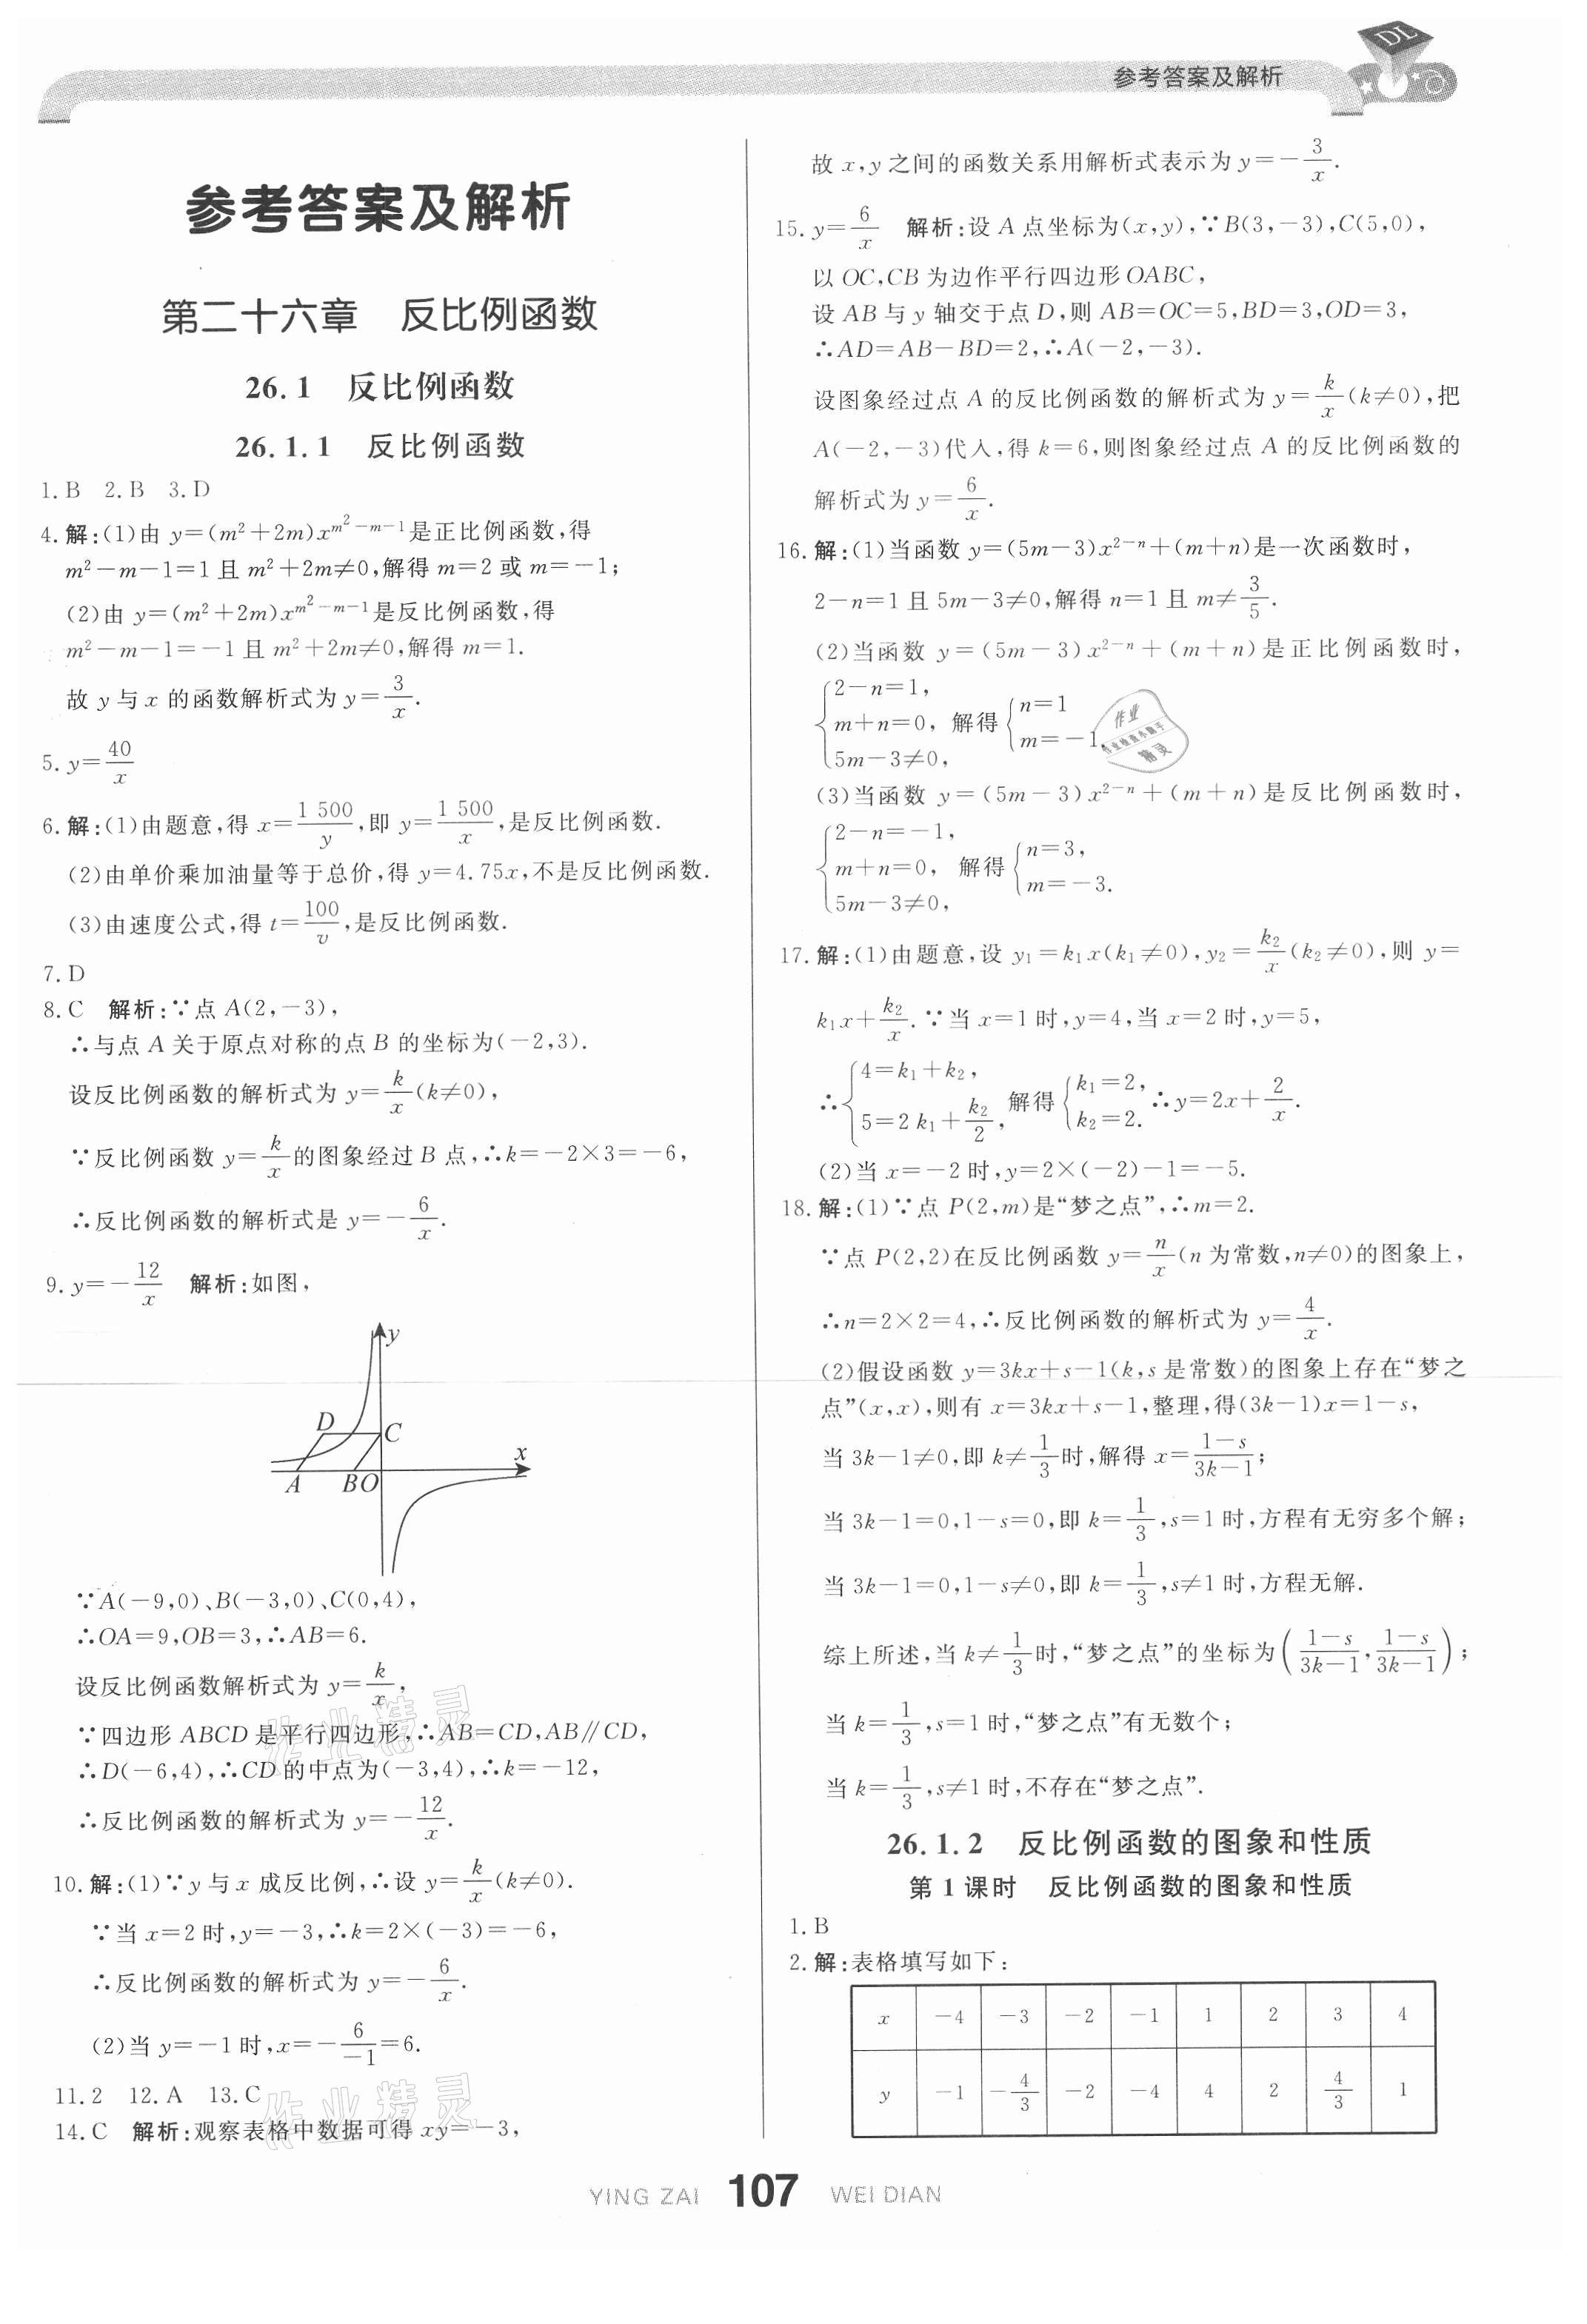 参考答案及解析
参考答案及解析
第二十六章 反比例函数
26.1 反比例函数
26.1.1 反比例函数
1.B 2.B 3.D
4.解:(1)由 y=(m²+2m)x^{m²-m-1}是正比例函数,得
m²-m-1=1且 m²+2m≠0,解得 m=2 或 m=-1;
(2)由 y=(m²+2m)x^{m²-m-1}是反比例函数,得
m²-m-1=-1且 m²+2m≠0,解得 m=1.
故 y 与 x 的函数解析式为 y=3/x.
5.y=40/x
6.解:(1)由题意,得 x=1 500/y,即 y=1 500/x,是反比例函数.
(2)由单价乘加油量等于总价,得 y=4.75x,不是反比例函数.
(3)由速度公式,得 t=100/v,是反比例函数.
7.D
8.C 解析:∵点 A(2,-3),
∴与点 A 关于原点对称的点 B 的坐标为(-2,3).
设反比例函数的解析式为 y=k/x(k≠0),
∵反比例函数 y=k/x的图象经过 B 点,∴k=-2×3=-6,
∴反比例函数的解析式是 y=-6/x.
9.y=-12/x 解析:如图,
y
D
C
x
A
B
O
∵A(-9,0)、B(-3,0)、C(0,4),
∴OA=9,OB=3,∴AB=6.
设反比例函数解析式为 y=k/x,
∵四边形 ABCD 是平行四边形,∴AB=CD,AB∥CD,
∴D(-6,4),∴CD的中点为(-3,4),∴k=-12,
∴反比例函数的解析式为 y=-12/x.
10.解:(1)∵y 与 x 成反比例,∴设 y=k/x(k≠0).
∵当 x=2 时,y=-3,∴k=2×(-3)=-6,
∴反比例函数的解析式为 y=-6/x.
(2)当 y=-1 时,x=-6/-1=6.
11.2 12.A 13.C
14.C 解析:观察表格中数据可得 xy=-3,
故 x,y 之间的函数关系用解析式表示为 y=-3/x.
15.y=6/x 解析:设 A 点坐标为(x,y),∵B(3,-3),C(5,0),
以 OC,CB 为边作平行四边形OABC,
设 AB 与 y 轴交于点 D,则 AB=OC=5,BD=3,OD=3,
∴AD=AB-BD=2,∴A(-2,-3).
设图象经过点 A 的反比例函数的解析式为 y=k/x(k≠0),把
A(-2,-3)代入,得 k=6,则图象经过点 A 的反比例函数的
解析式为 y=6/x.
16.解:(1)当函数 y=(5m-3)x^{2-n}+(m+n)是一次函数时,
2-n=1 且 5m-3≠0,解得 n=1 且 m≠3/5.
(2)当函数 y=(5m-3)x^{2-n}+(m+n)是正比例函数时,
{2-n=1, m+n=0, 5m-3≠0, 解得{n=1 m=-1.
(3)当函数 y=(5m-3)x^{2-n}+(m+n)是反比例函数时,
{2-n=-1, m+n=0, 5m-3≠0, 解得{n=3, m=-3.
17.解:(1)由题意,设 y₁=k₁x(k₁≠0),y₂=k₂/x(k₂≠0),则 y=
k₁x+k₂/x.∵当 x=1 时,y=4,当 x=2 时,y=5,
∴{4=k₁+k₂, 5=2k₁+k₂/2, 解得{k₁=2, k₂=2. ∴y=2x+2/x.
(2)当 x=-2 时,y=2×(-2)-1=-5.
18.解:(1)∵点 P(2,m)是“梦之点”,∴m=2.
∵点 P(2,2)在反比例函数 y=n/x(n 为常数,n≠0)的图象上,
∴n=2×2=4,∴反比例函数的解析式为 y=4/x.
(2)假设函数 y=3kx+s-1(k,s 是常数)的图象上存在“梦之
点”(x,x),则有 x=3kx+s-1,整理,得(3k-1)x=1-s,
当 3k-1≠0,即 k≠1/3时,解得 x=1-s/3k-1;
当 3k-1=0,1-s=0,即 k=1/3,s=1 时,方程有无穷多个解;
当 3k-1=0,1-s≠0,即 k=1/3,s≠1 时,方程无解.
综上所述,当 k≠1/3时,“梦之点”的坐标为(1-s/3k-1,1-s/3k-1);
当 k=1/3,s=1 时,“梦之点”有无数个;
当 k=1/3,s≠1 时,不存在“梦之点”.
26.1.2 反比例函数的图象和性质
第 1 课时 反比例函数的图象和性质
1.B
2.解:表格填写如下:
x -4 -3 -2 -1 1 2 3 4
y -1 -4/3 -2 -4 4 2 4/3 1
YING ZAI 107 WEI DIAN